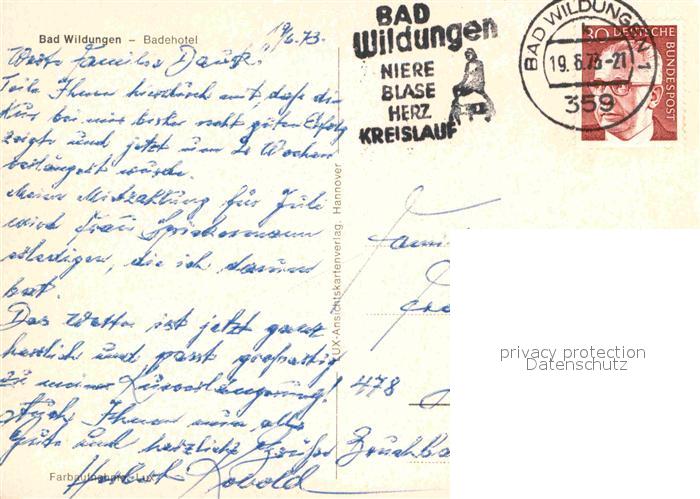 Bad Wildungen – Badehotel
19/6.73.
Werte Familie
Teile Ihnen hierdurch mit, daß die
Kur bei mir bisher recht guten Erfolg
zeigte und jetzt um 2 Wochen
verlängert wurde.
Meine Mietzahlung für Juli
wird Frau Spiekermann
erledigen, die ich darum
bat.
Das Wetter ist jetzt ganz
herrlich und passt großartig
zu meiner Kurverlängerung!
Auch Ihnen nun alles
Gute und herzliche Grüße
Herbert
Farbaufnahme: Lux
LUX-Ansichtskartenverlag, Hannover
BAD
Wildungen
NIERE
BLASE
HERZ
KREISLAUF
BAD WILDUNGEN 1
19.6.73-21
359
30 DEUTSCHE
BUNDESPOST
Fami
478
Bruchba
privacy protection
Datenschutz